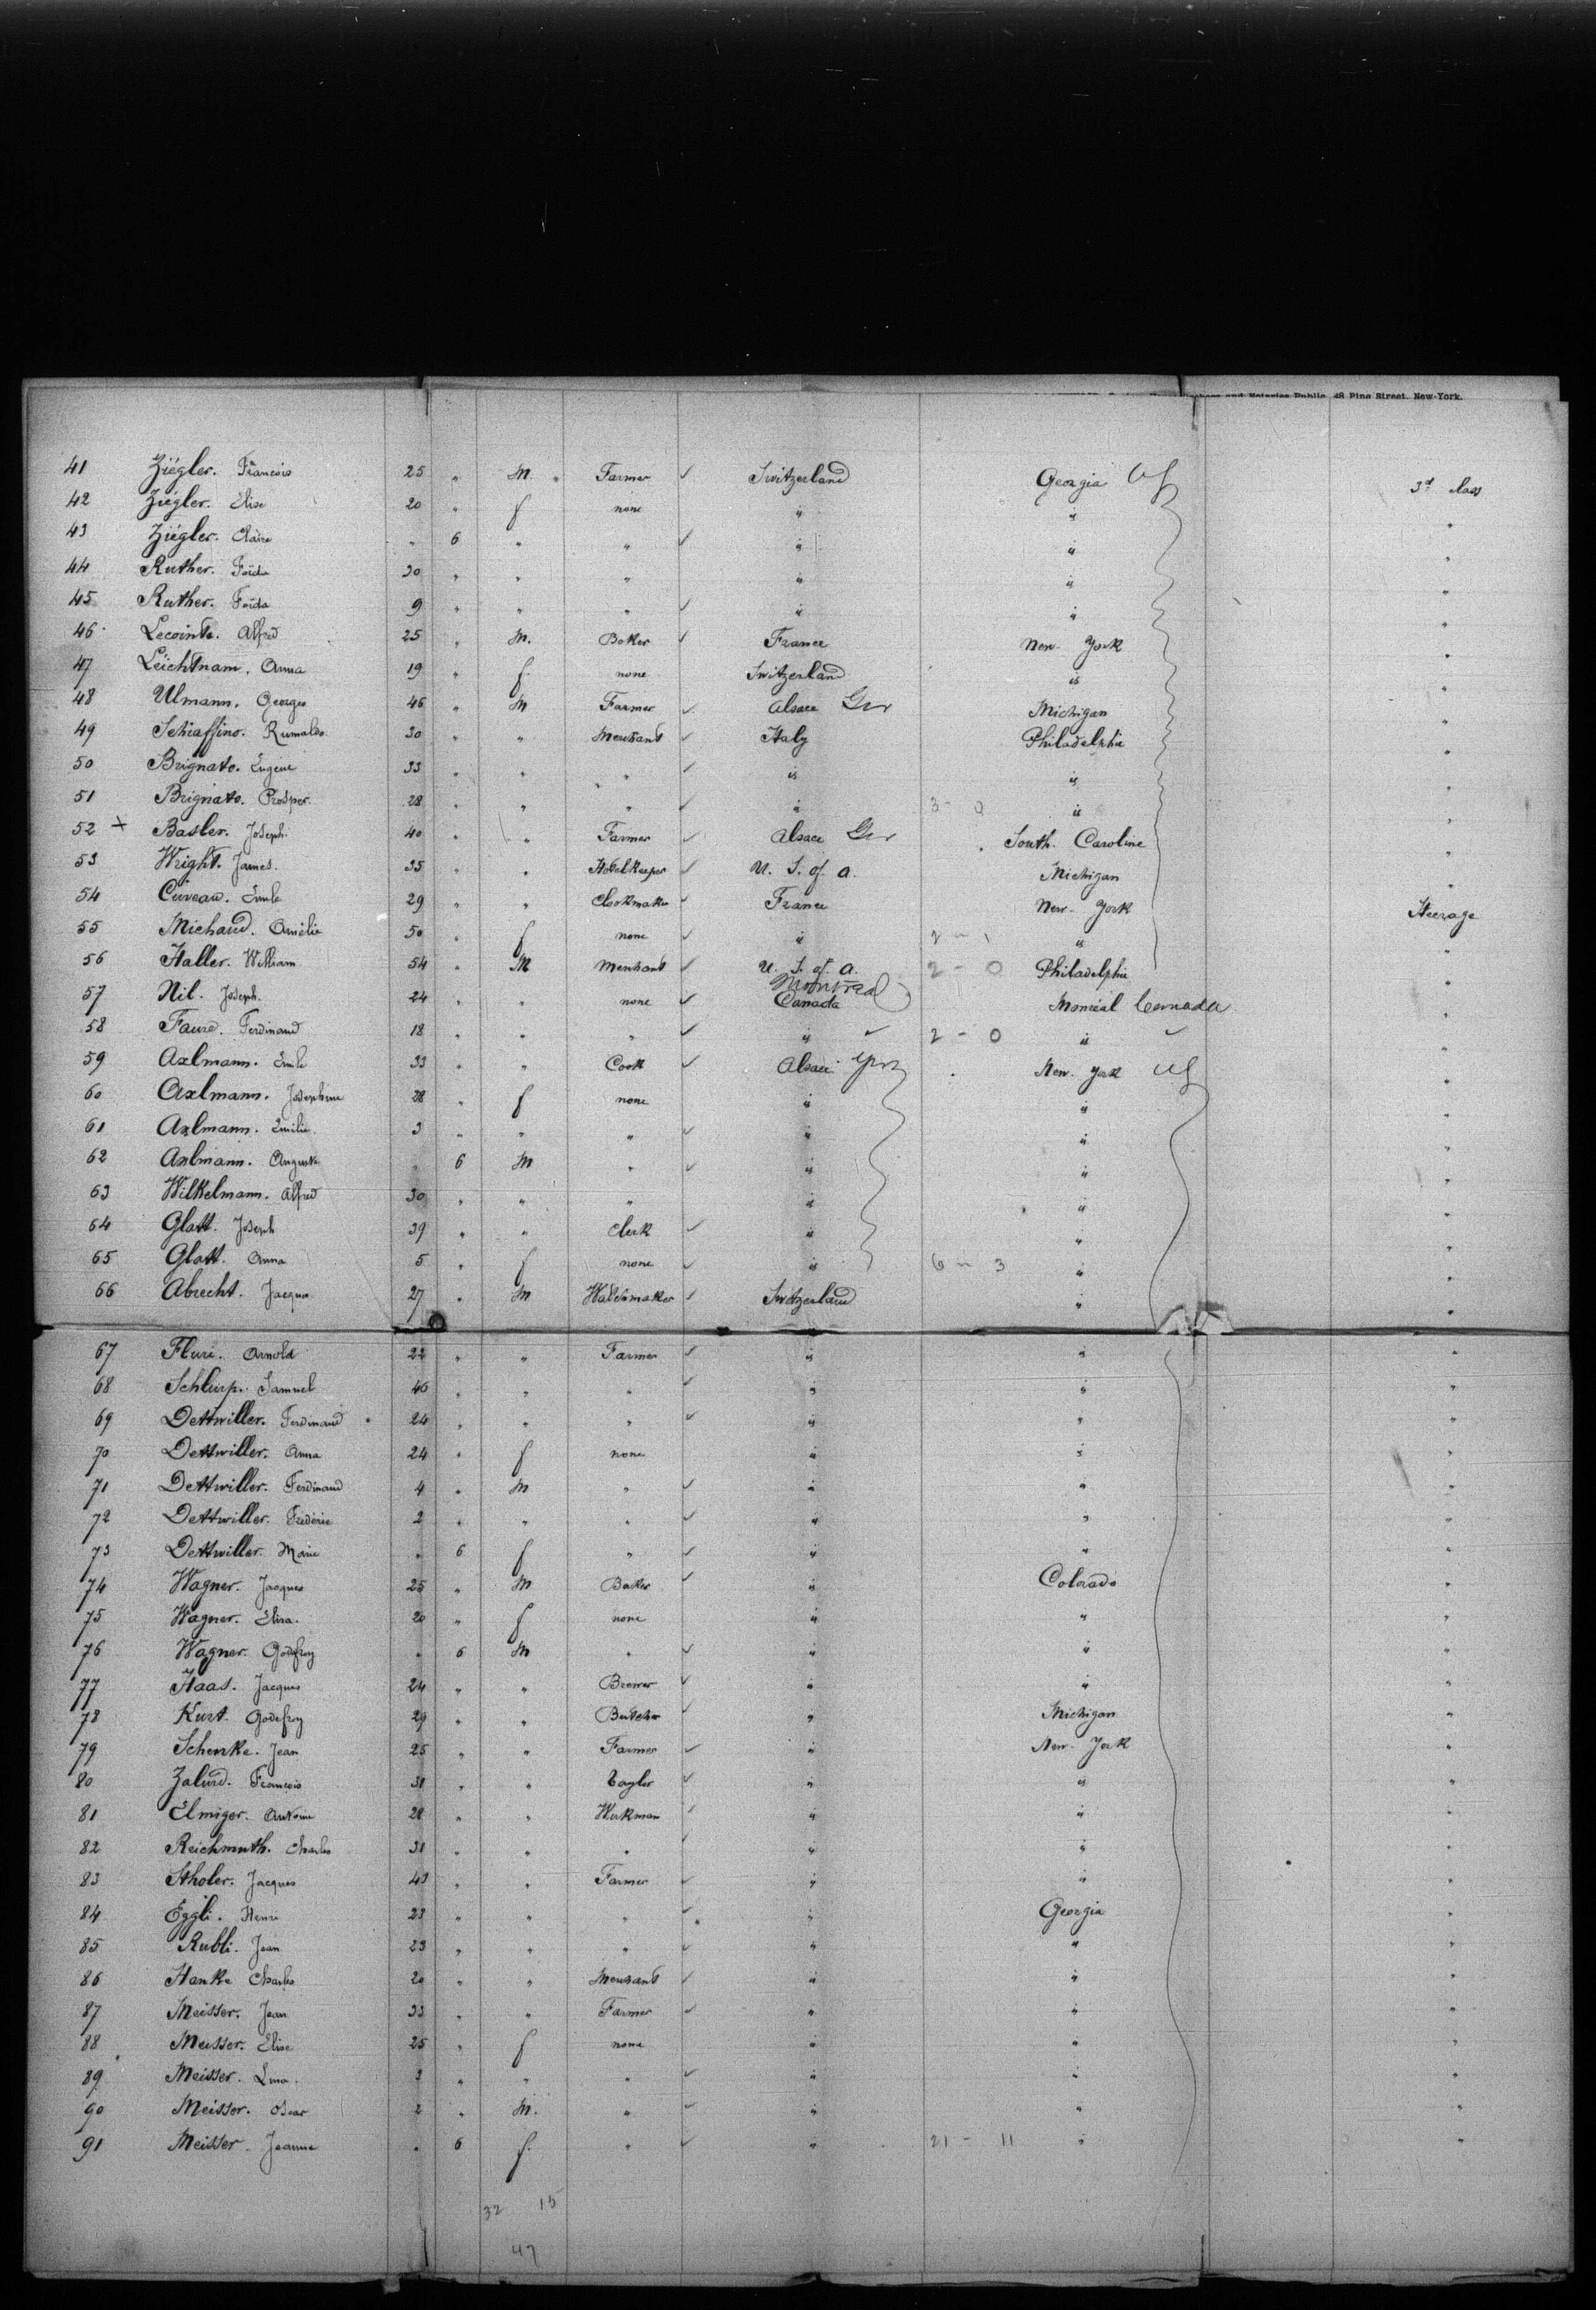 and Notaries Public, 48 Pine Street, New-York.
41 Ziégler. François 25 " M. " Farmer ✓ Switzerland Georgia US 3d class
42 Ziégler. Elise 20 " f none " " "
43 Ziégler. Claire " 6 " " ✓ " " "
44 Ruther. Foïda 30 " " " " " "
45 Ruther. Foïda 9 " " " ✓ " " "
46 Lecointe. Alfred 25 " M. Baker ✓ France New-York "
47 Leichtnam. Anna 19 " f. none Switzerland is "
48 Ulmann. Georges 46 " M Farmer ✓ Alsace Ger Michigan "
49 Schiaffino. Rumaldo 30 " " Merchant ✓ Italy Philadelphie "
50 Brignato. Eugène 33 " " " ✓ is is "
51 Brignato. Prosper. 28 " " " ✓ " 3 - 0 " "
52 + Basler. Joseph. 40 " " Farmer ✓ Alsace Ger South. Caroline "
53 Wright. James. 35 " " Hotelkeeper ✓ U. S. of. A. Michigan "
54 Cuveau. Emile 29 " " Clockmaker ✓ France New-York Steerage
55 Michaud. Amélie 50 " f none ✓ " 2 - 1 is "
56 Haller. William 54 " M Merchant ✓ U. S. of. A. 2 - 0 Philadelphie "
57 Nil. Joseph. 24 " " none ✓ Montreal Canada Monréal Canada "
58 Faure. Ferdinand 18 " " " ✓ is ✓ 2 - 0 " ✓ "
59 Axlmann. Emile 33 " " Cook ✓ Alsace Ger New-York US "
60 Axlmann. Josephine 28 " f none " " "
61 Axlmann. Emilie. 3 " " " ✓ " " "
62 Axlmann. Auguste " 6 M " ✓ " " "
63 Wilkelmann. Alfred 30 " " " " " "
64 Glatt. Joseph 39 " " Clerk ✓ " " "
65 Glatt. Anna 5 " f none ✓ is 6 - 3 " "
66 Abrecht. Jacques 27 " M Watchmaker ✓ Switzerland " "
67 Fluri. Arnold 22 " " Farmer ✓ is " "
68 Schlurp. Samuel 46 " " " ✓ " " "
69 Dettwiller. Ferdinand 24 " " " ✓ " " "
70 Dettwiller. Anna 24 " f none " " "
71 Dettwiller. Ferdinand 4 " M " ✓ " " "
72 Dettwiller. Frédéric 2 " " " ✓ " " "
73 Dettwiller. Marie " 6 f " ✓ " " "
74 Wagner. Jacques 25 " M Baker ✓ " Colorado "
75 Wagner. Elisa. 20 " f none " " "
76 Wagner. Godefroy " 6 M " ✓ " " "
77 Haas. Jacques 24 " " Brewer ✓ " " "
78 Kurt. Godefroy 29 " " Butcher ✓ " Michigan "
79 Schenke. Jean 25 " " Farmer ✓ " New-York "
80 Zalurd. François 31 " " Taylor ✓ " is "
81 Elmiger. Antoine 28 " " Workman ✓ " " "
82 Reichmuth. Charles 31 " " " ✓ " " "
83 Stholer. Jacques 43 " " Farmer ✓ " " "
84 Eggli. Henri 23 " " " ✓ " Georgia "
85 Rubli. Jean 23 " " " ✓ " " "
86 Hanke Charles 20 " " Merchant ✓ " " "
87 Meisser. Jean 33 " " Farmer ✓ " " "
88 Meisser. Elise 25 " f none " " "
89 Meisser. Lina. 3 " " " ✓ " " "
90 Meisser. Oscar 2 " M. " ✓ " " "
91 Meisser. Jeanne " 6 f. " ✓ " 21 - 11 " "
32 15
47